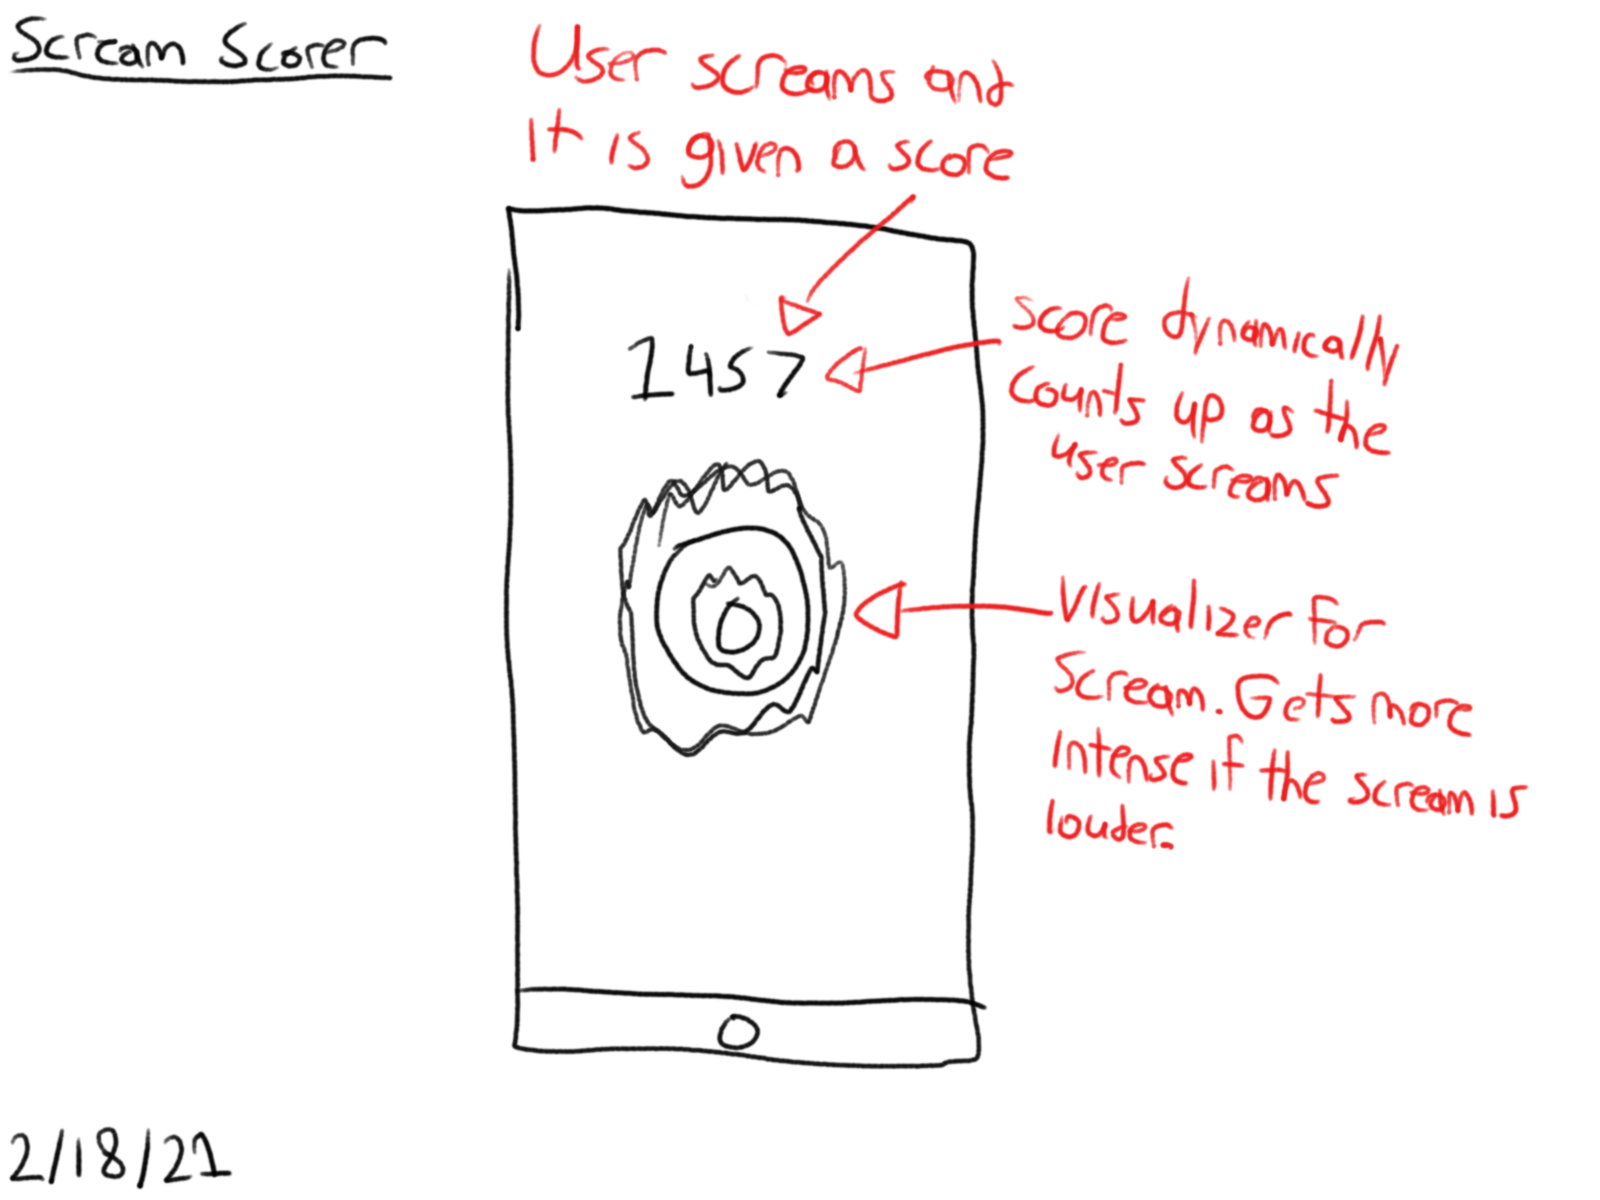 Scream Scorer
User screams and
it is given a score
1457
score dynamically
counts up as the
user screams
Visualizer for
Scream. Gets more
intense if the scream is
louder.
2/18/21